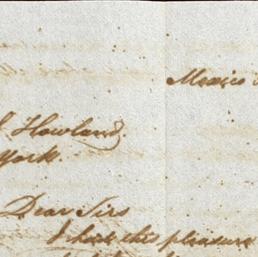 Mexico
Howland
York.
Dear Sirs
I have this pleasure